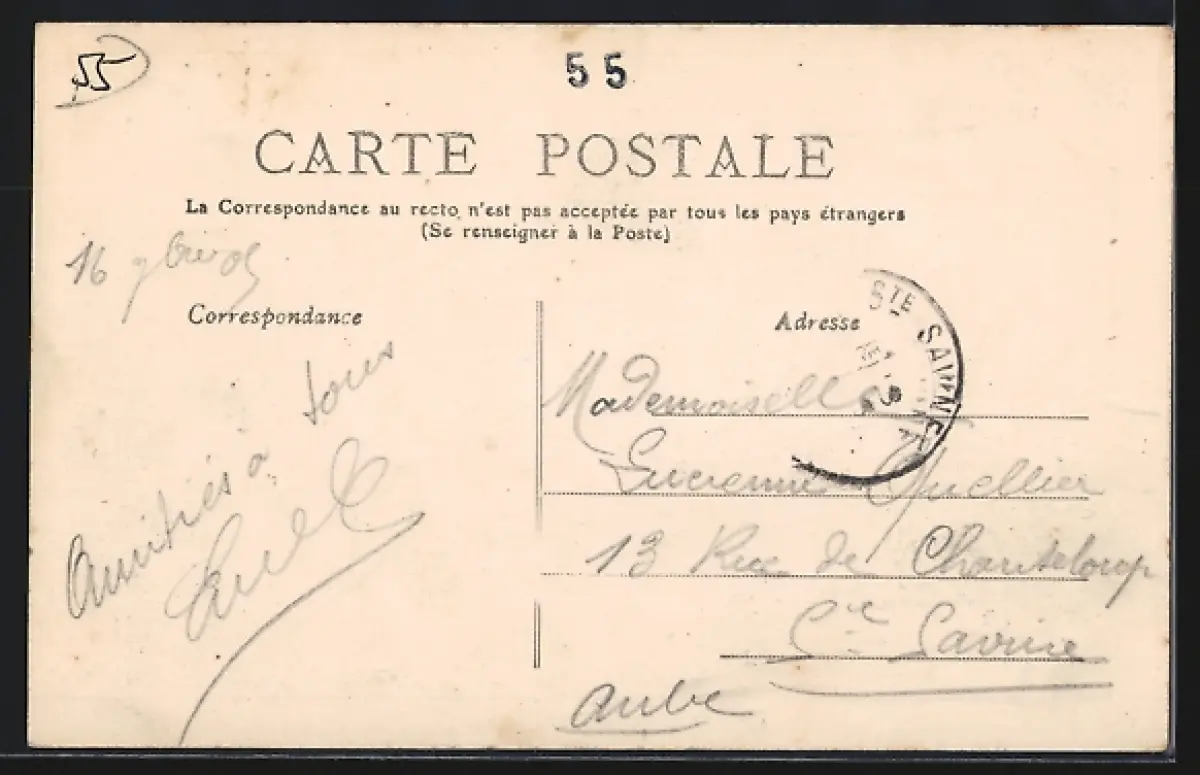 55
55
CARTE POSTALE
La Correspondance au recto, n'est pas acceptée par tous les pays étrangers
(Se renseigner à la Poste)
16
Correspondance
Amitiés à tous
Adresse
STE SAVINE
Mademoiselle
13 Rue de Chanteloup
Ste Savine
Aube